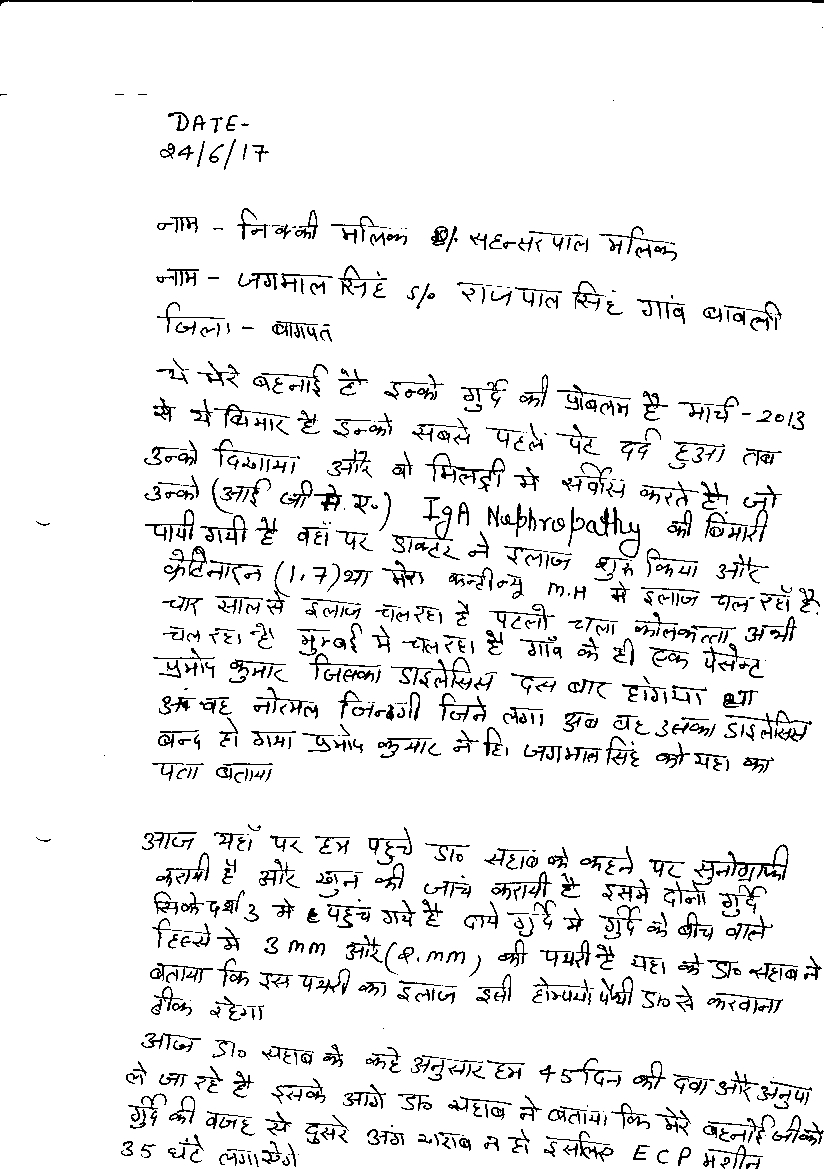 DATE-
24/6/17
नाम - निक्की मलिक S/० सहन्सरपाल मलिक
नाम - जगमाल सिहं S/० राजपाल सिहं गांव बावली
जिला - बागपत
ये मेरे बहनोई है इनको गुर्दे की प्रोबलम है मार्च - 2013
से ये बिमार है इनको सबसे पहले पेट दर्द हुआ तब
उनको दिखाया और वो मिलट्री मे सर्वीस करते है। जो
उनको (आई जी मे. ए.) IgA Nephropathy की बिमारी
पायी गयी है वहाँ पर डाक्टर ने इलाज शुरू किया और
क्रेटिनाइन (1.7) था मेरा कन्टीन्यू M.H मे इलाज चल रहाँ है.
चार साल से इलाज चल रहा है पहले चला कोलकत्ता अभी
चल रहा है मुम्बई मे चल रहा है गाँव के ही एक पेसेन्ट
प्रमोद कुमार जिसका डाइलेसिस दस बार होगया था
अब वह नोरमल जिन्दगी जिने लगा अब यह उसका डाइलेसिस
बन्द हो गया प्रमोद कुमार ने हि। जगमाल सिंह को यहा का
पता बताया
आज यहाँ पर हम पहुचे डा० सहाब के कहने पर सुनोग्राफी
करायी है और खुन की जांच करायी है इसमे दोनो गुर्दे
3 मे पहुंच गये है दाये गुर्दे मे गुर्दे के बीच वाले
हिस्से मे 3 mm और (2.mm) की पथरी है यहा के डा० सहाब ने
बताया कि इस पथरी का इलाज इसी होम्योपैथी डा० से करवाना
ठीक रहेगा
आज डा० सहाब के कहे अनुसार हम 45 दिन की दवा और अनुपा
ले जा रहे है इसके आगे डा० सहाब ने बताया कि मेरे बहनोई जी को
गुर्दे की वजह से दुसरे अंग खराब न हो इसलिए ECP मशीन
35 घंटे लगायेगे